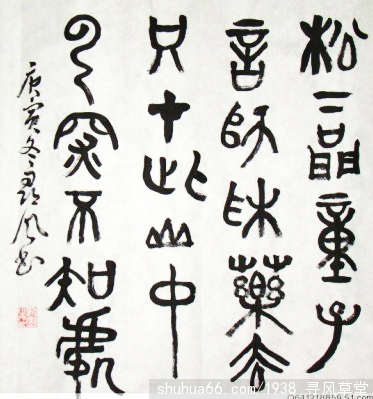 松下問童子
言師采藥去
只在此山中
云深不知處
庚寅冬尋風書
shuhua66.com/1938 寻风草堂